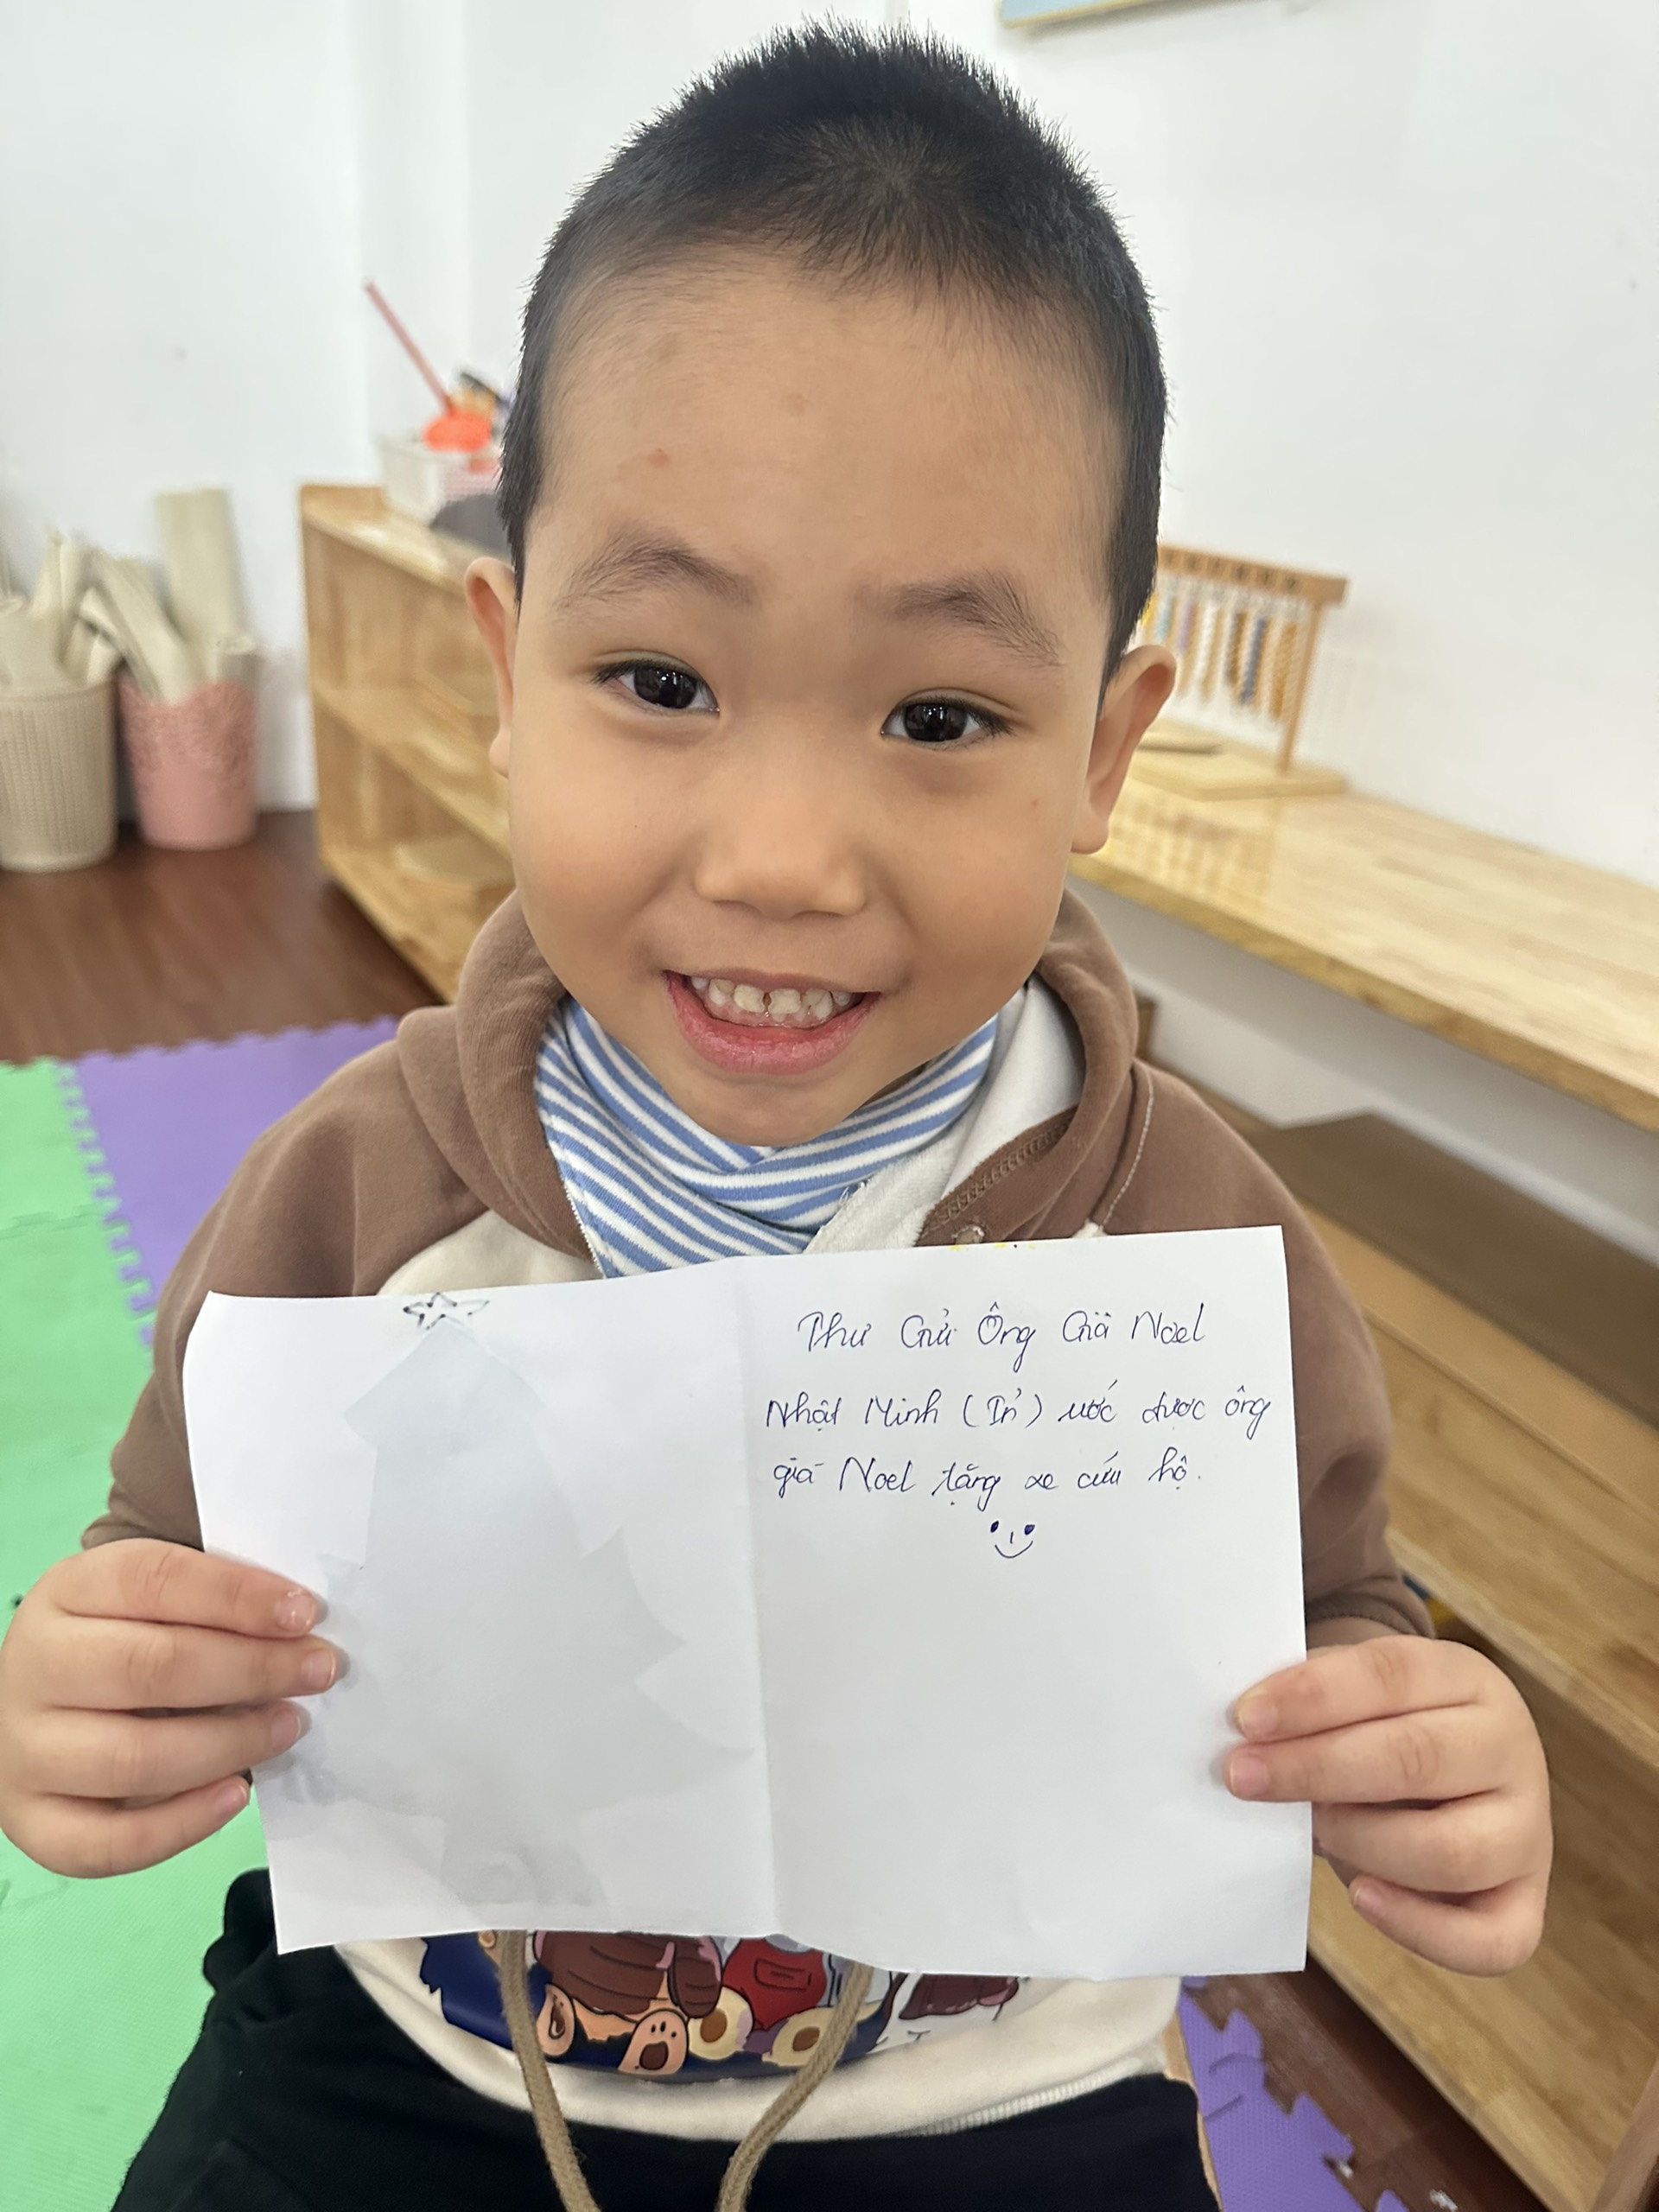 Thư Gửi Ông Già Noel
Nhật Minh (Tỉn) ước được ông
già Noel tặng xe cứu hộ.